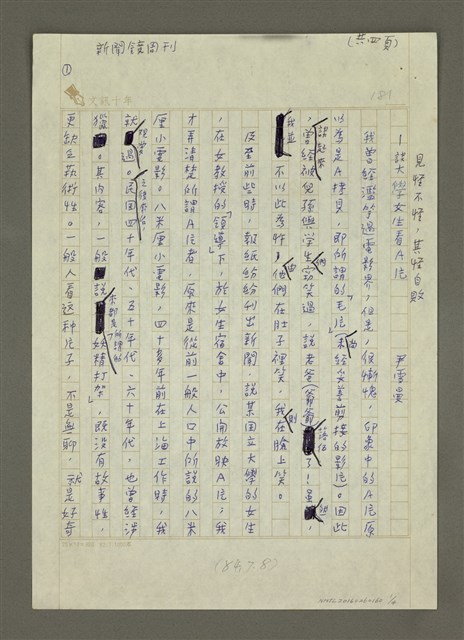 新聞鏡周刊
(共四頁)
①
文訊十年
181
見怪不怪,其怪自敗
—談大學女生看A片
尹雪曼
我曾經濫竽過電影界,但是,很慚愧,印象中的A片原
以為是A拷貝,即所謂的「毛片」(未經妥善剪接的影片)。因此
,曾經被兒孫與學生們竊笑過,說老爸(爺爺)落伍了!但
我並不以此為忤,由他們在肚子裡笑,我則在臉上笑。
及至前些時,報紙紛紛刊出新聞,說某國立大學的女生
,在女教授的「領導」下,於女生宿舍中,公開放映A片,我
才弄清楚所謂A片者,原來是從前一般人口中所說的八米
厘小電影。八米厘小電影,四十多年前在上海工作時,我
就觀賞過。民國四十年代、五十年代、六十年代,也曾經涉
獵。其內容,一般說來都是所謂的「妖精打架」,既沒有故事性,
更缺乏藝術性。一般人看這种片子,不是無聊,就是好奇
(84.7.8)